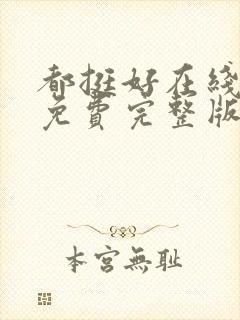 都挺好在綫
免費完整版
本宮無耻